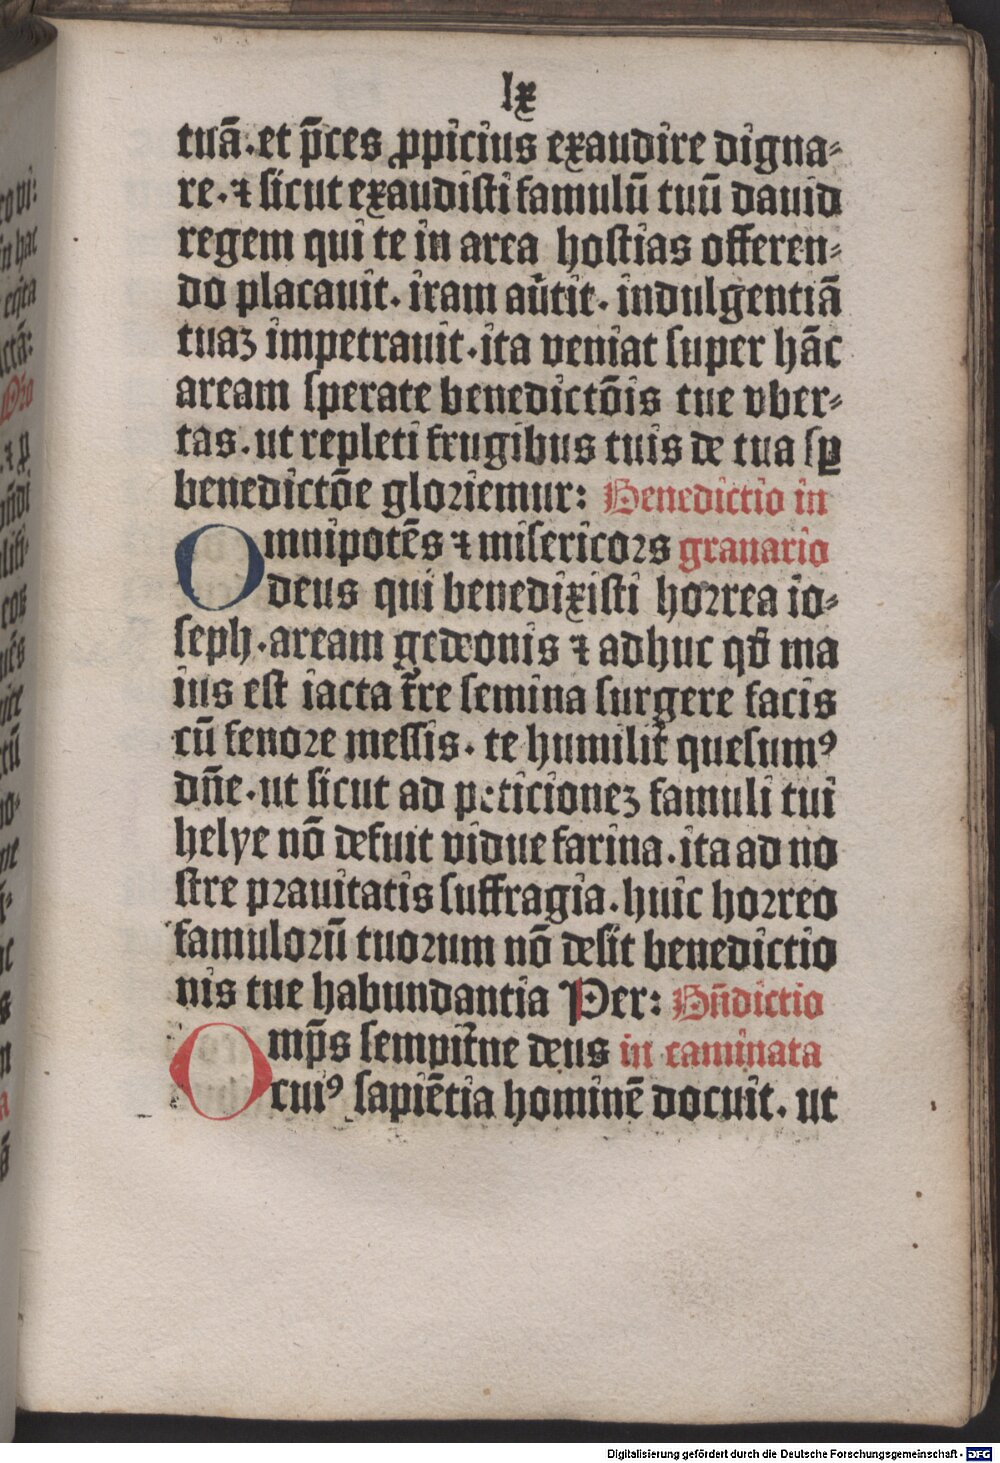 lx
tuā.et p̄ces ꝓpicius exaudire digna⸗
re.⁊ sicut exaudisti famulū tuū dauid
regem qui te in area hostias offeren⸗
do placauit. iram aūtit. indulgentiā
tuaꝫ impetrauit.ita veniat super hāc
aream sperate benedictōis tue vber⸗
tas.ut repleti frugibus tuis de tua sꝑ
benedictōe gloriemur: Benedictio in
Omnipotēs ⁊ misericors granario
deus qui benedixisti horrea io⸗
seph.aream gedeonis ⁊ adhuc qđ ma
ius est iacta t̄re semina surgere facis
cū fenore messis. te humilit̄ quesumꝰ
dn̄e.ut sicut ad peticioneꝫ famuli tui
helye nō defuit vidue farina.ita ad no
stre prauitatis suffragia.huic horreo
famulorū tuorum nō desit benedictio
nis tue habundantia Per: Bn̄dictio
Omp̄s sempit̄ne deus in caminata
cuiꝰ sapiētia hominē docuit. ut
ro vi:
in hac
ctā:
Digitalisierung gefördert durch die Deutsche Forschungsgemeinschaft - DFG